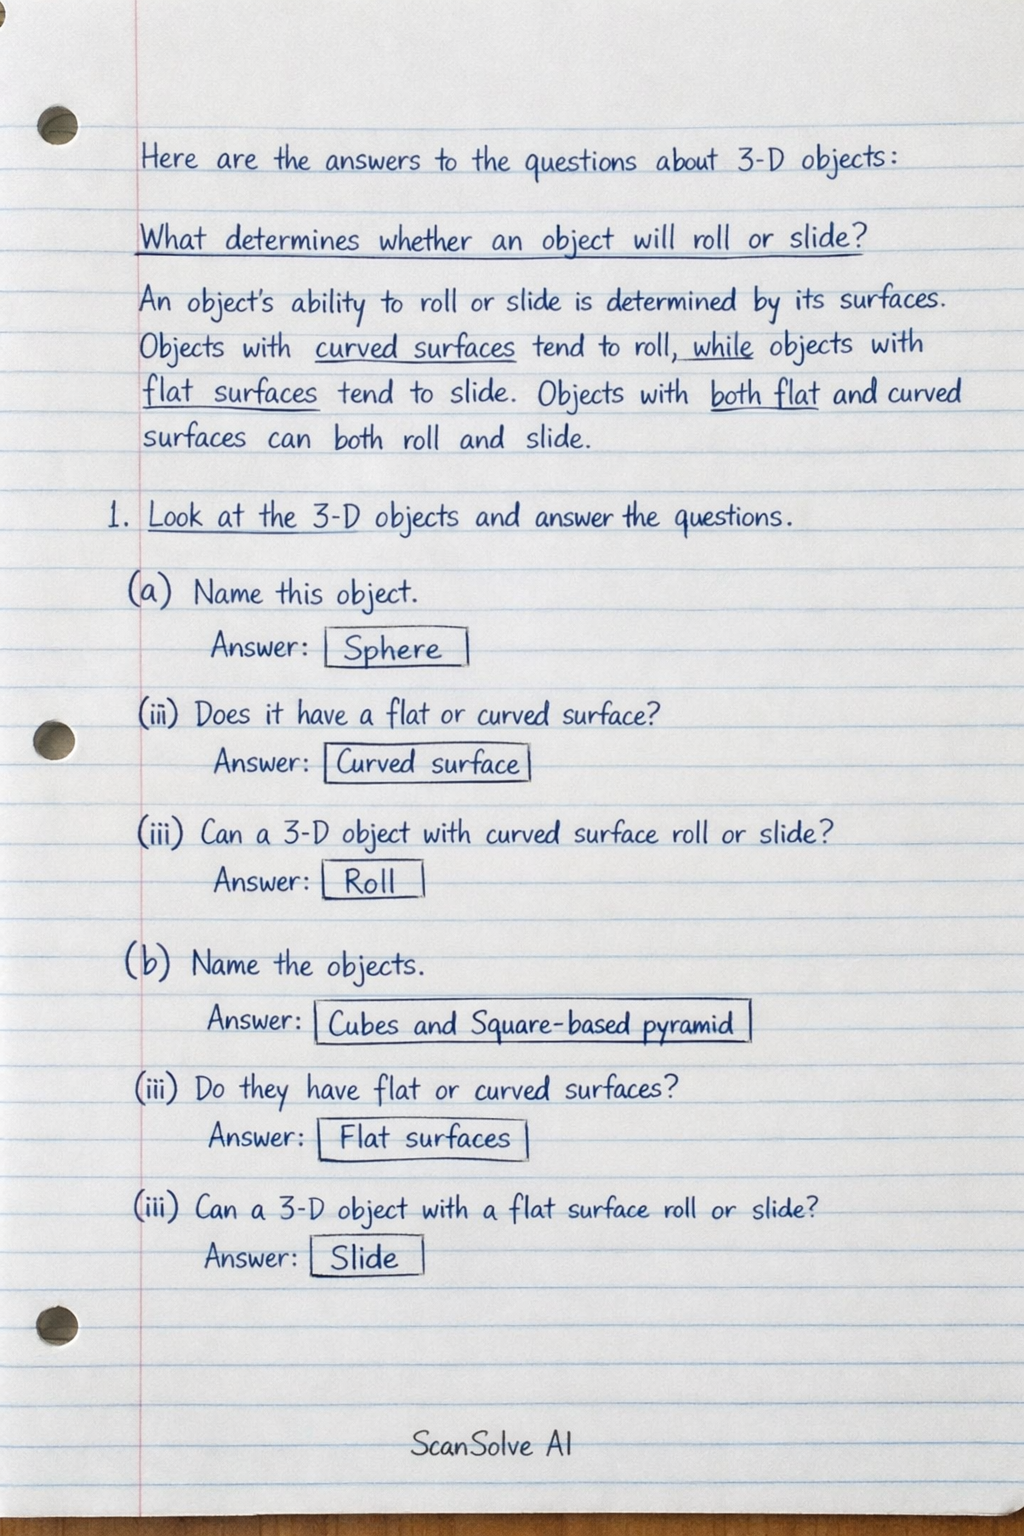 Here are the answers to the questions about 3-D objects:
What determines whether an object will roll or slide?
An object's ability to roll or slide is determined by its surfaces.
Objects with curved surfaces tend to roll, while objects with
flat surfaces tend to slide. Objects with both flat and curved
surfaces can both roll and slide.
1. Look at the 3-D objects and answer the questions.
(a) Name this object.
Answer: Sphere
(iii) Does it have a flat or curved surface?
Answer: Curved surface
(iii) Can a 3-D object with curved surface roll or slide?
Answer: Roll
(b) Name the objects.
Answer: Cubes and Square-based pyramid
(iii) Do they have flat or curved surfaces?
Answer: Flat surfaces
(iii) Can a 3-D object with a flat surface roll or slide?
Answer: Slide
ScanSolve AI